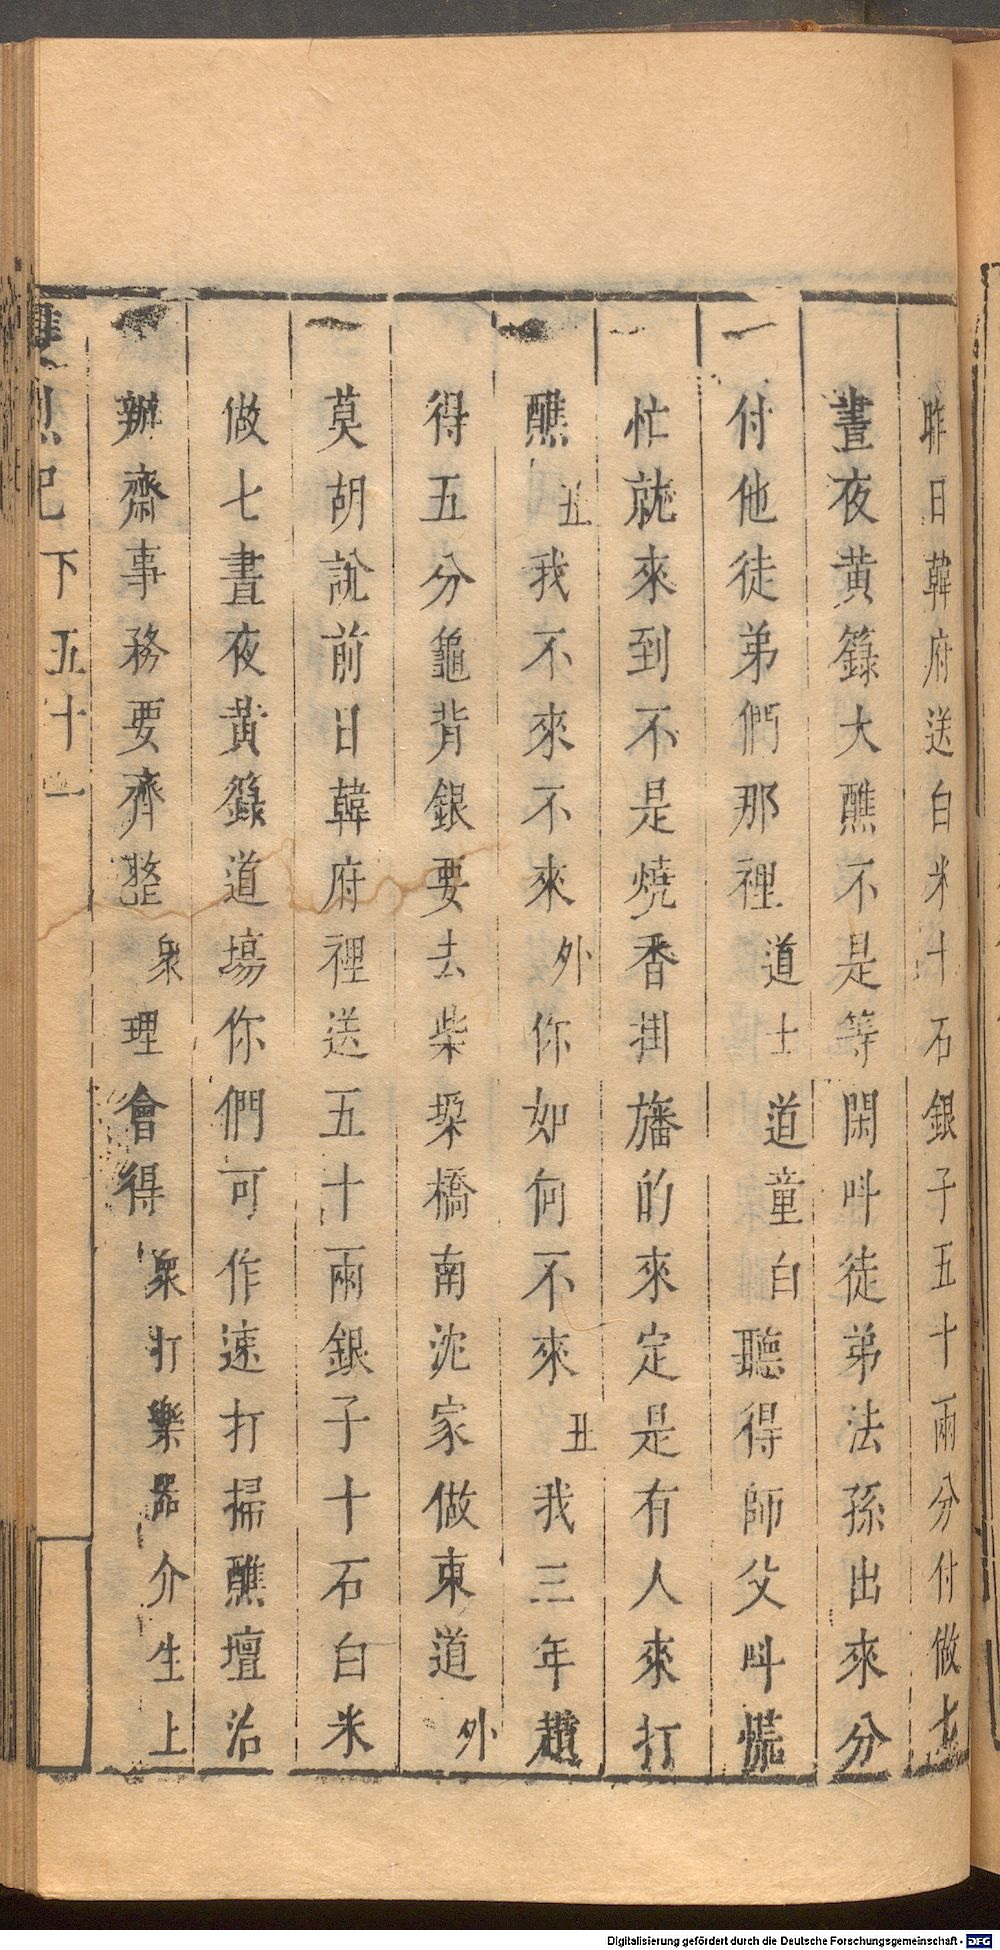 昨日韓府送白米十石銀子五十兩分付做七
晝夜黄籙大醮不是等閑呌徒弟法孫出來分
付他徒弟們那裡道士道童白聽得師父呌慌
忙就來到不是燒香掛旛的來定是有人來打
醮丑我不來不來外你如何不來丑我三年趲
得五分龜背銀要去柴垜橋南沈家做東道外
莫胡說前日韓府裡送五十兩銀子十石白米
做七晝夜黄籙道場你們可作速打掃醮壇治
辦齋事務要齊整衆理會得衆打樂器介生上
雙烈記下五十一
Digitalisierung gefördert durch die Deutsche Forschungsgemeinschaft - DFG